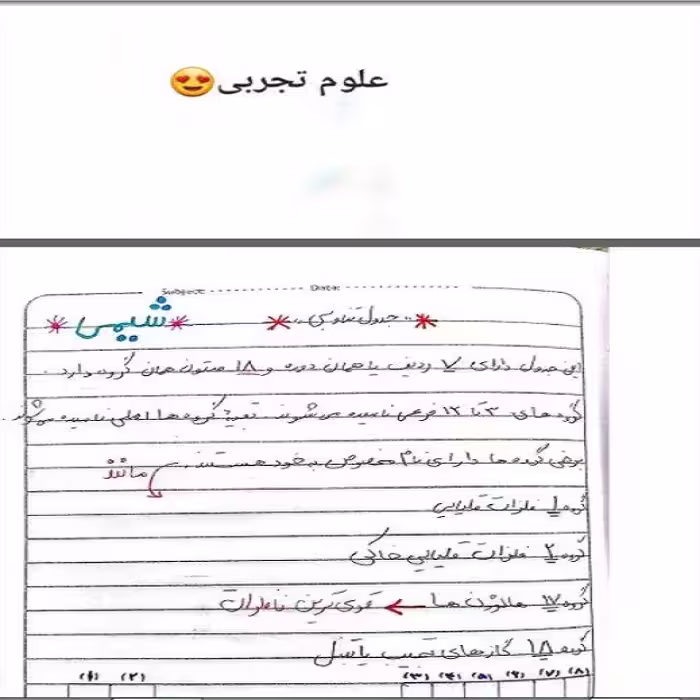 علوم تجربی😍
Subject: Date:
* شیمی * * جدول تناوبی *
این جدول دارای ۷ ردیف یا همان دوره و ۱۸ ستون همان گروه دارد.
گروه های ۳ تا ۱۲ فرعی نامیده می شوند. بقیه گروه ها اصلی نامیده می شوند.
برخی گروه ها دارای نام مخصوص به خود هستند. مانند
گروه ۱ فلزات قلیایی
گروه ۲ فلزات قلیایی خاکی
گروه ۱۷ هالوژن ها ← قوی ترین نافلزات
گروه ۱۸ گازهای نجیب یا نبل
(۱) (۲) (۳) (۴) (۵) (۶) (۷) (۸)